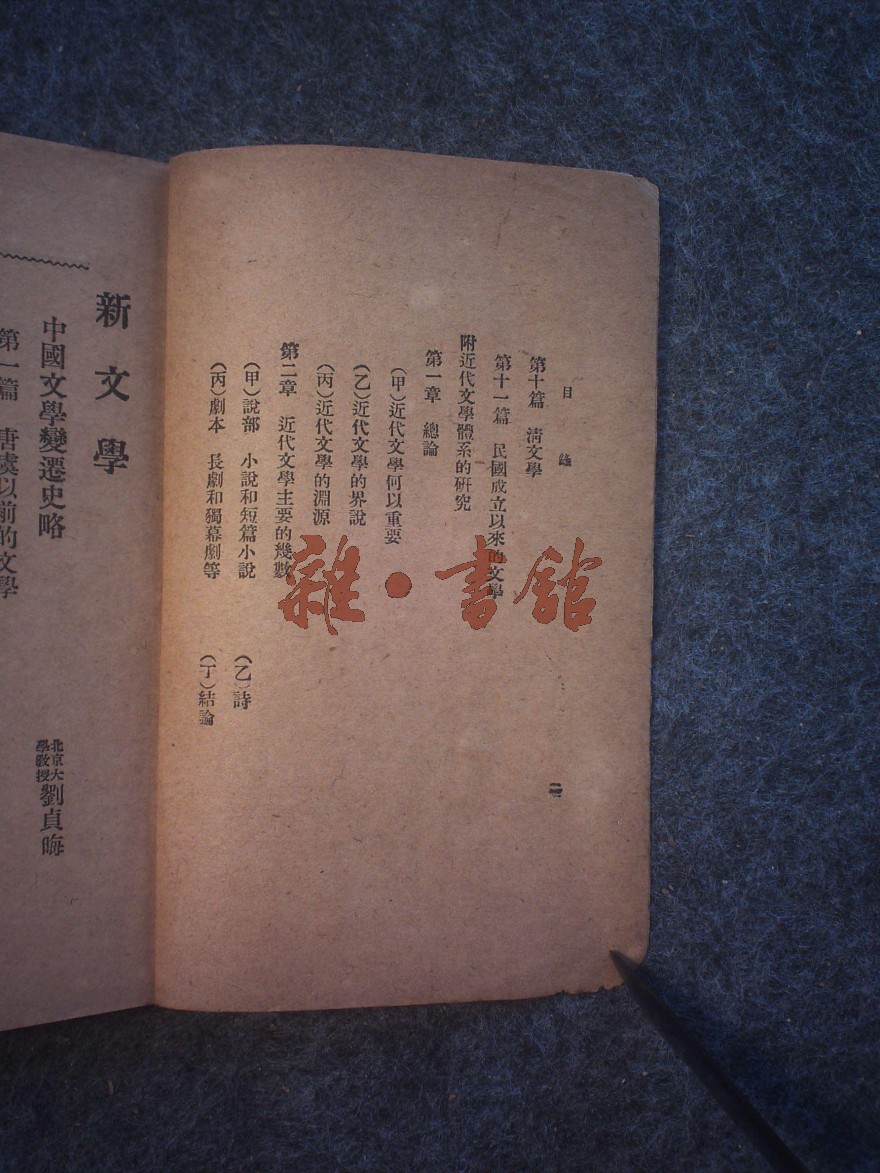 目錄
第十篇 淸文學
第十一篇 民國成立以來的文學
附近代文學體系的硏究
第一章 總論
（甲）近代文學何以重要
（乙）近代文學的界說
（丙）近代文學的淵源
第二章 近代文學主要的幾數
（甲）說部 小說和短篇小說 （乙）詩
（丙）劇本 長劇和獨幕劇等 （丁）結論
二
雜·書館
新文學
中國文學變遷史略 北京大學教授 劉貞晦
第一篇 唐虞以前的文學